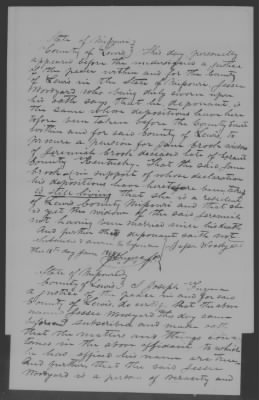 State of Missouri
County of Lewis } This day personally
appeared before the undersigned a Justice
of the peace within and for the County
of Lewis in the State of Missouri Jesse
Woodyard who being duly sworn upon
his oath says that he deponent is
the same whose depositions have here
before been taken before the County Court
within and for said County of Lewis, to
procure a pension for Jane brook widow
of Jeremiah brook deceased late of Grant
County Kentucky. That the said Jane
brook in support of whose declaration
his depositions have heretofore been taken
is still living that she is a resident
of Lewis County Missouri and that she
is yet the widow of the said Jeremiah
not having been married since his death
And further this deponent saith not
Subscribed & sworn to before me } Jesse Woodyard
the 18th day June
State of Missouri
County of Lewis } I Joseph
a Justice of the peace in and for said
County of Lewis do certify that the above
named Jesse Woodyard this day came
before subscribed and made oath
that the matters and things con
tained in the above affidavit to which
he has affixed his name are true
And further that the said Jesse
Woodyard is a person of veracity and